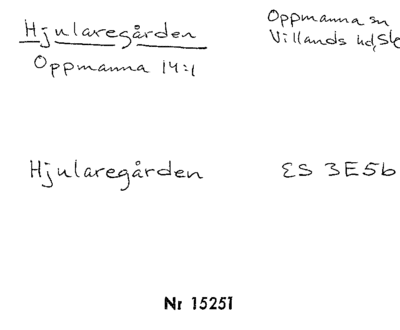 Hjularegården
Oppmanna sn
Villands hd, Sk
Oppmanna 14:1
Hjularegården
ES 3E5b
Nr 15251